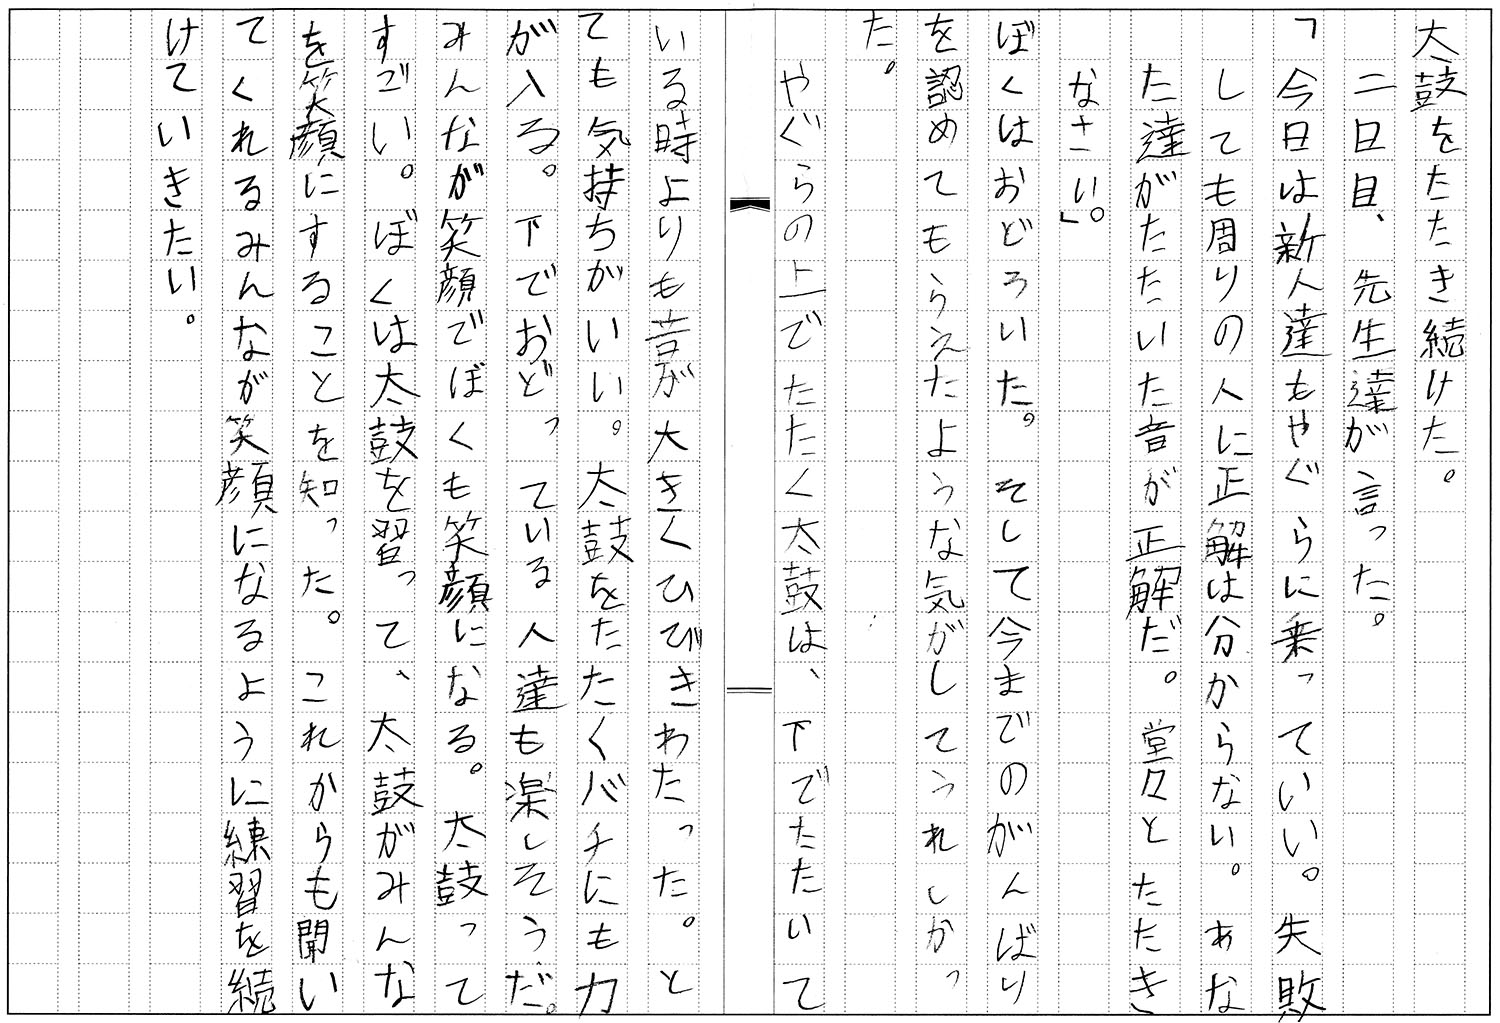 太鼓をたたき続けた。
二日目、先生達が言った。
「今日は新人達もやぐらに乗っていい。失敗
しても周りの人に正解は分からない。あな
た達がたたいた音が正解だ。堂々とたたき
なさい。」
ぼくはおどろいた。そして今までのがんばり
を認めてもらえたような気がしてうれしかっ
た。
やぐらの上でたたく太鼓は、下でたたいて
いる時よりも音が大きくひびきわたった。と
ても気持ちがいい。太鼓をたたくバチにも力
が入る。下でおどっている人達も楽しそうだ。
みんなが笑顔でぼくも笑顔になる。太鼓って
すごい。ぼくは太鼓を習って、太鼓がみんな
を笑顔にすることを知った。これからも聞い
てくれるみんなが笑顔になるように練習を続
けていきたい。